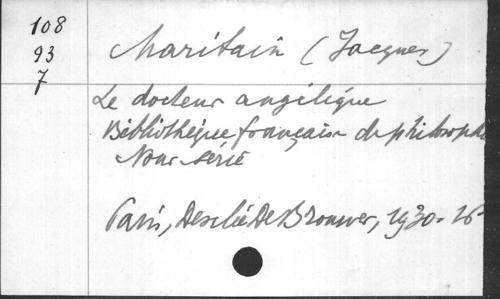 108
93
7
Maritain (Jacques)
Le docteur angélique
Bibliothèque française de philosophie
Nouv série
Paris, Desclée De Brouwer, 1930. 16°